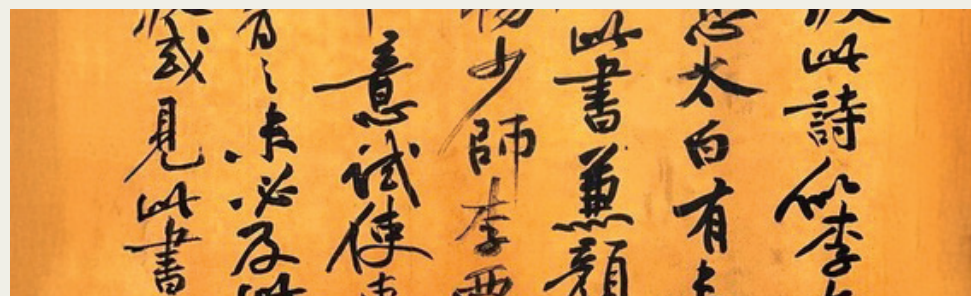 此詩似李
恐太白有未
此書兼顏
楊少師李西
意試使東
為之未必及此
坡或見此書